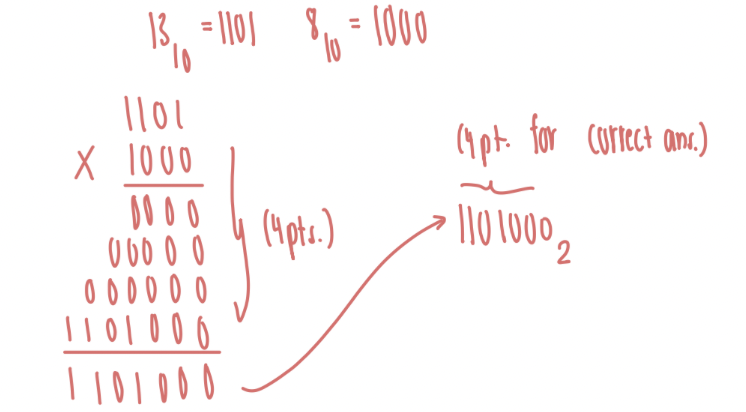 13₁₀ = 1101   8₁₀ = 1000
1101
X 1000
0000
00000
000000
1101000
1101000
(4pts.)
(4pt. for correct ans.)
1101000₂